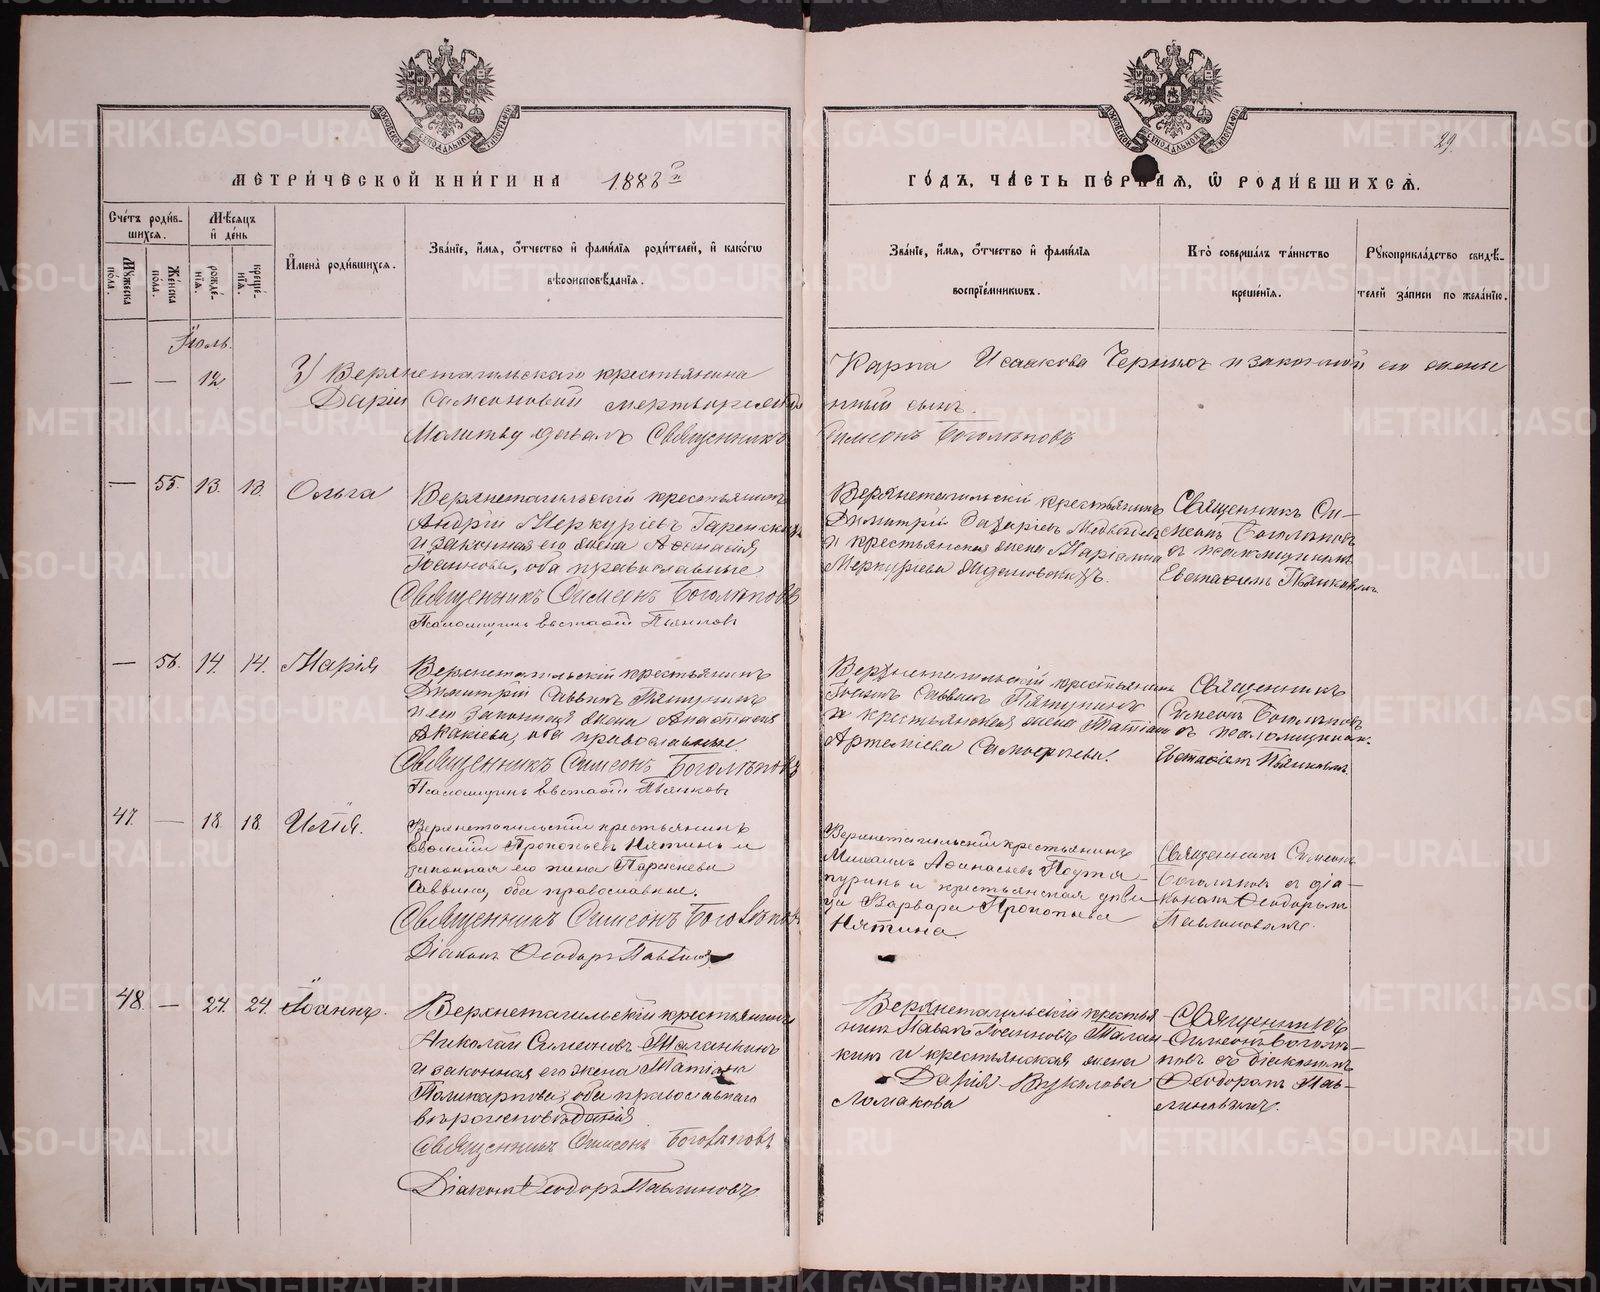 МЕТРИ́ЧЕСКОЙ КНИ́ГИ НА 1888 й
ГО́ДЪ, ЧА́СТЬ ПЕ́РВАЯ, Ѡ РОДИ́ВШИХСЯ.
29.
Сче́тъ роди́в-
шихся.
Мѣ́сяцъ
и́ де́нь
Му́жеска
по́ла.
Же́нска
пола.
рожде́-
нїя.
креще́-
нїя.
И҆мена̀ роди́вшихся.
Зва́нїе, и҆́мя, о҆́тчество и҆ фами́лїя роди́телей, и҆ како́гѡ
вѣроисповѣ́данїя.
Зва́нїе, и҆́мя, о҆́тчество и҆ фами́лїя
воспрїе́мниковъ.
Кто̀ соверша́лъ та́инство
креще́нїя.
Рꙋкоприкла́дство свидѣ́-
телей за́писи по жела́нїю.
Іюль.
— — 12
3) Верхнетагильскаго крестьянина
Карпа Исаакова Черныхъ и законной его жены
Даріи Самсоновой мертворожде
нный сынъ.
Молитву давалъ Священникъ
Симеонъ Боголѣповъ
— 55. 13. 13. Ольга
Верхнетагильскій крестьянинъ
Андрей Меркуріевъ
и законная его жена Афанасія
Іоаннова, оба православные
Священникъ Симеонъ Боголѣповъ
Псаломщикъ Евстафій Пьянковъ
Верхнетагильскій крестьянинъ
Димитрій Захаріевъ Медведевъ
и крестьянская жена Маріамна
Меркуріева
Священникъ Си-
меонъ Боголѣповъ
съ псаломщикомъ
Евстафіемъ Пьянковымъ.
— 56. 14. 14. Марія
Верхнетагильскій крестьянинъ
Димитрій Саввинъ Пятунинъ
и его законная жена Анастасія
Акакіева, оба православные.
Священникъ Симеонъ Боголѣповъ
Псаломщикъ Евстафій Пьянковъ
Верхнетагильскій крестьянинъ
Іоаннъ Саввинъ Пятунинъ
и крестьянская жена Татіана
Артеміева
Священникъ
Симеонъ Боголѣповъ
съ псаломщикомъ
Евстафіемъ Пьянковымъ.
47. — 18. 18. Илія.
Верхнетагильскій крестьянинъ
Прокопьевъ Нятинъ и
законная его жена Параскева
Саввина, оба православные.
Священникъ Симеонъ Боголѣповъ
Діаконъ Ѳеодоръ Павлиновъ
Верхнетагильскій крестьянинъ
Михаилъ Аѳанасьевъ
и крестьянская деви
ца Варвара Прокопьева
Нятина.
Священникъ Симеонъ
Боголѣповъ съ діа-
кономъ Ѳеодоромъ
Павлиновымъ.
48. — 24. 24. Іоаннъ.
Верхнетагильскій крестьянинъ
Николай Симеоновъ Таланкинъ
и законная его жена Татіана
Поликарпова, оба православнаго
вѣроисповѣданія
Священникъ Симеонъ Боголѣповъ
Діаконъ Ѳеодоръ Павлиновъ
Верхнетагильскій крестья
нинъ Павелъ Іоанновъ Талан-
кинъ и крестьянская жена
Дарія Вуколова
Ломакова
Священникъ
Симеонъ Боголѣ-
повъ съ діакономъ
Ѳеодоромъ Пав-
линовымъ.
METRIKI.GASO-URAL.RU